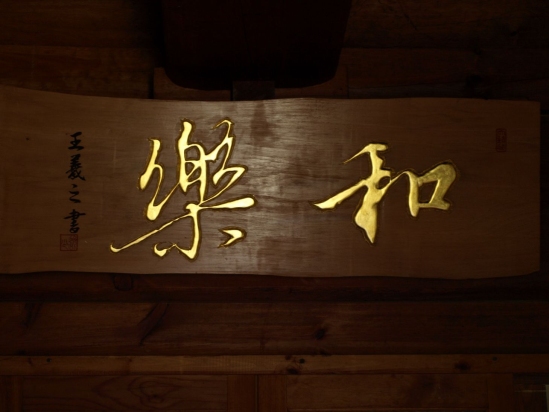 和樂
王羲之書